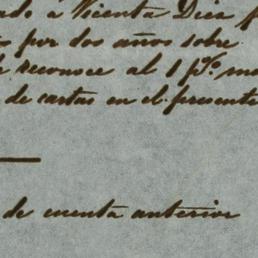 ado a Vicenta Diez p
os por dos años sobre
le reconoce al 1 p%. me
de cartas en el presente
de cuenta anterior